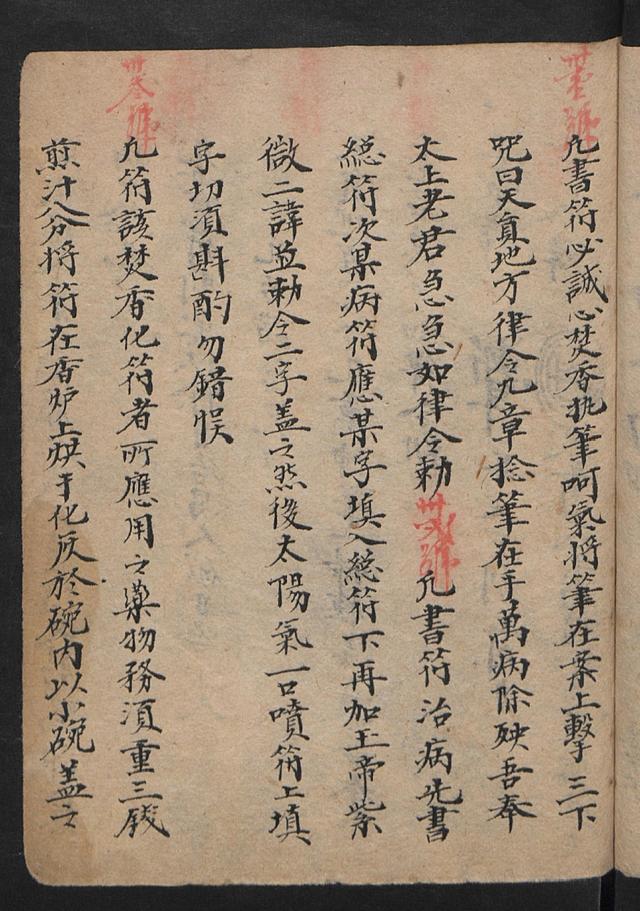 卅壹號
凢書符必誠心焚香执筆呵氣将筆在案上擊三下
咒曰天員地方律令九章捻筆在手萬病除殃吾奉
太上老君急急如律令勅 卅弍號 凢書符治病先書
總符次某病符應某字填入總符下再加玉帝紫
微二諱並勅令二字盖之然後太陽氣一口噴符上填
字切須斟酌勿錯悮
卅叁號
凢符該焚香化符者所應用之藥物務須重三錢
煎汁八分将符在香炉上焕才化灰於碗内以小碗盖之